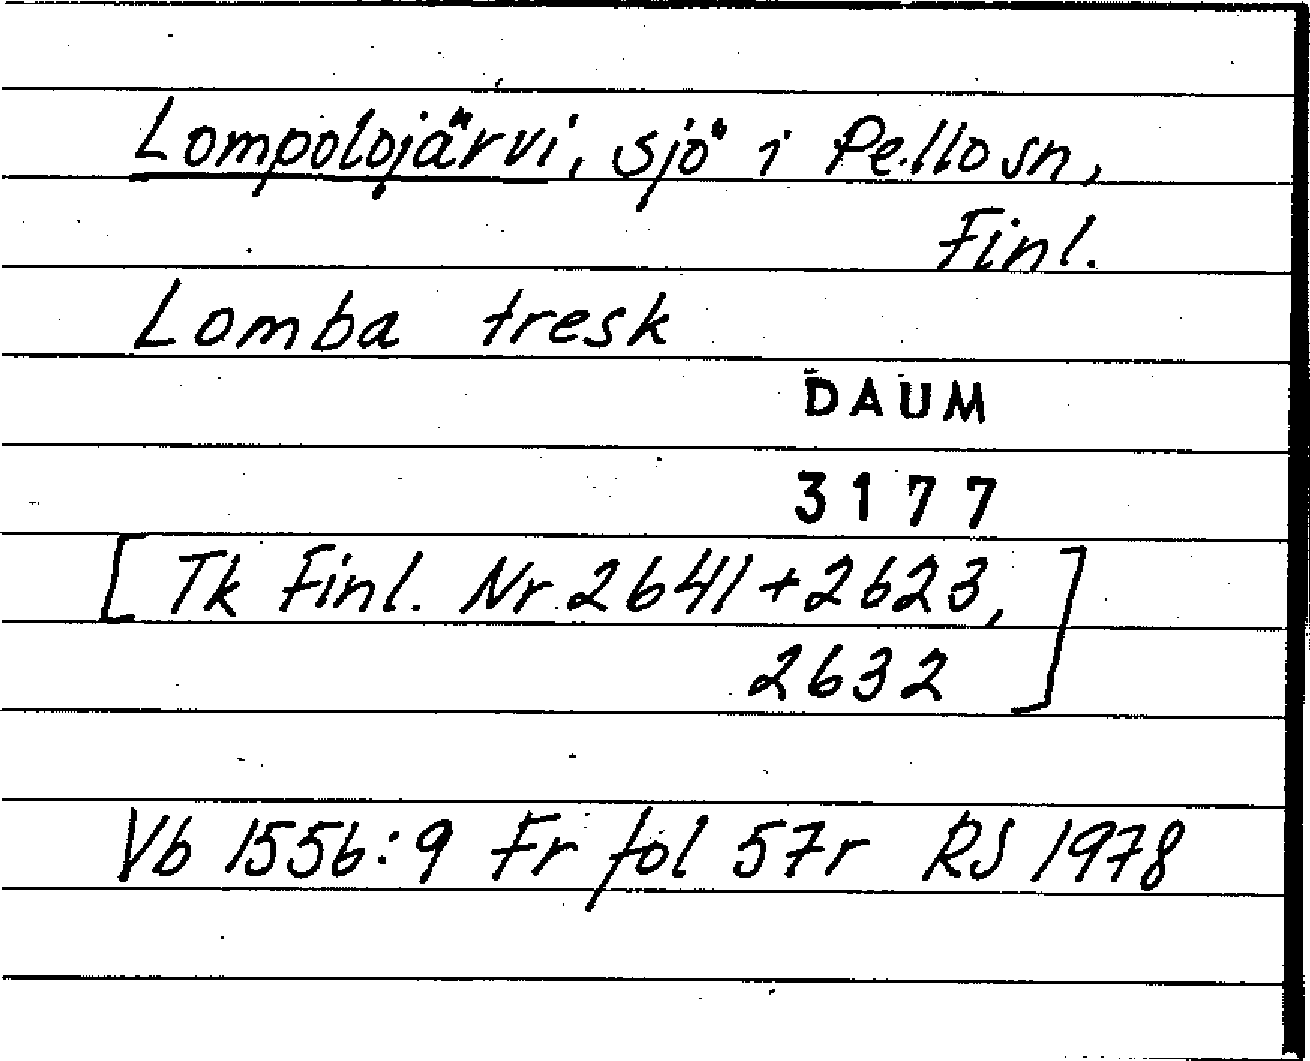 Lompolojärvi, sjö i Pello sn,
Finl.
Lomba tresk
DAUM
3177
[Tk Finl. Nr 2641+2623,
2632]
Vb 1556:9 Fr fol 57r RS 1978